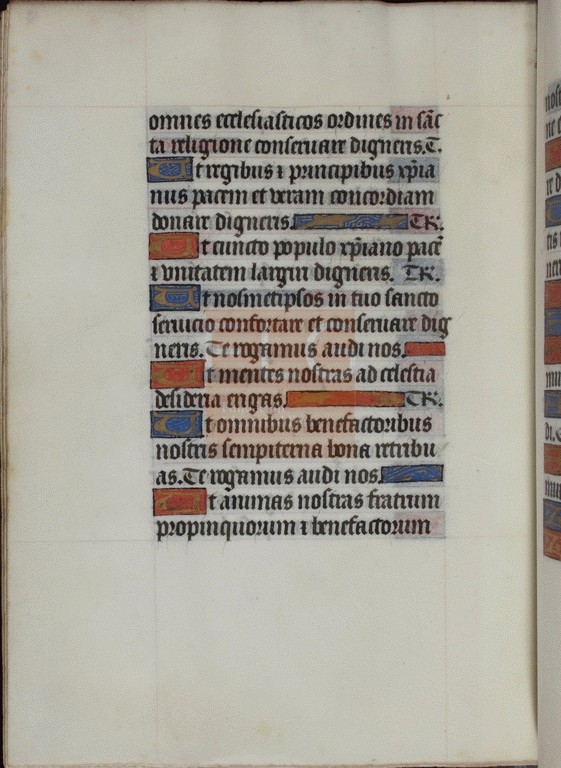 omnes ecclesiasticos ordines in sāc
ta religione conseruare digneris. T.
Et regibus ⁊ principibus xp̄ia
nis pacem et veram concordiam
donare digneris. TR.
Et cuncto populo xp̄iano pacē
⁊ vnitatem largiri digneris. TR.
Et nosmetipsos in tuo sancto
seruicio confortare et conseruare dig
neris. Te rogamus audi nos.
Et mentes nostras ad celestia
desideria erigas. TR.
Et omnibus benefactoribus
nostris sempiterna bona retribu
as. Te rogamus audi nos.
Et animas nostras fratrum
propinquorum ⁊ benefactorum